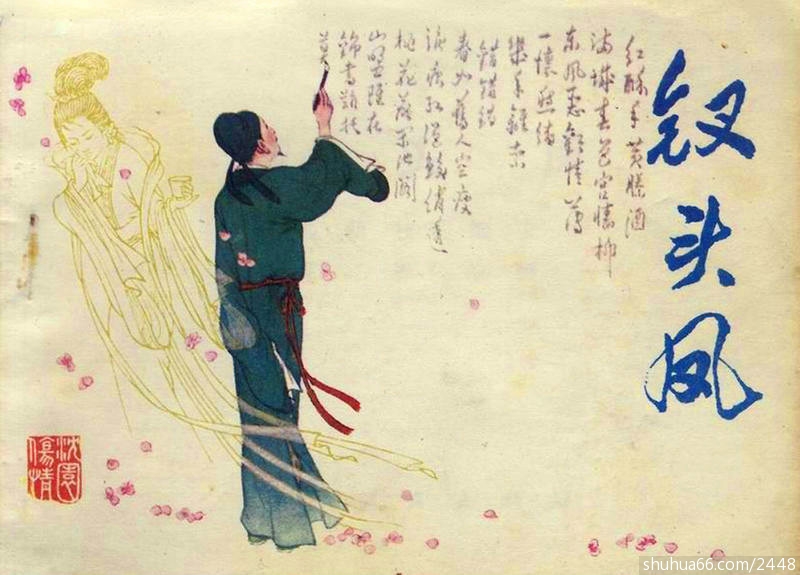 钗头凤
红酥手黄縢酒
满城春色宫墙柳
东风恶欢情薄
一懷愁绪
几年離索
錯錯錯
春如舊人空瘦
泪痕红浥鲛绡透
桃花落闲池阁
山盟雖在
锦书难托
莫
沈園
傷情
shuhua66.com/2448